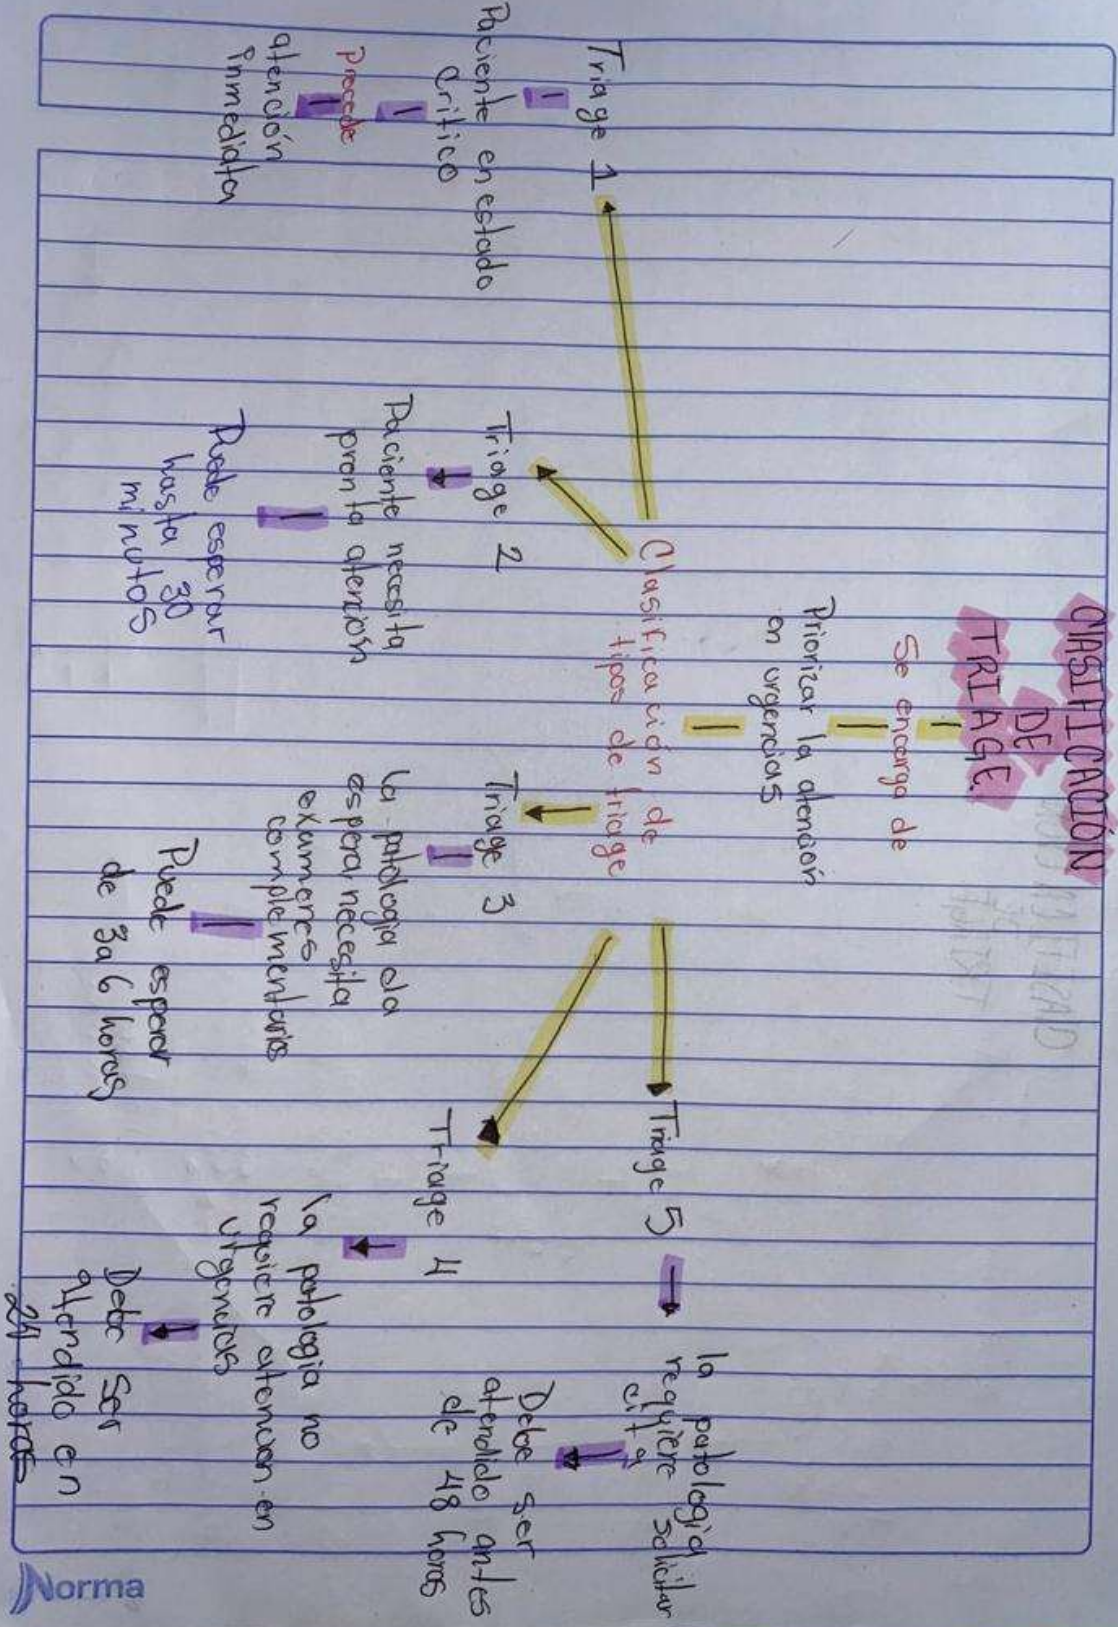 CLASIFICACIÓN
DE
TRIAGE.
Se encarga de
Priorizar la atención
en urgencias
Clasificación de
tipos de triage
Triage 1
Paciente en estado
Critico
Procede
atención
inmediata
Triage 2
Paciente necesita
pronta atención
Puede esperar
hasta 30
minutos
Triage 3
la patologia da
espera necesita
examenes
complementarios
Puede esperar
de 3 a 6 horas
Triage 4
la patologia no
requiere atencion en
urgencias
Debe ser
atendido en
24 horas
Triage 5
la patologia
requiere solicitar
cita
Debe ser
atendido antes
de 48 horas
Norma